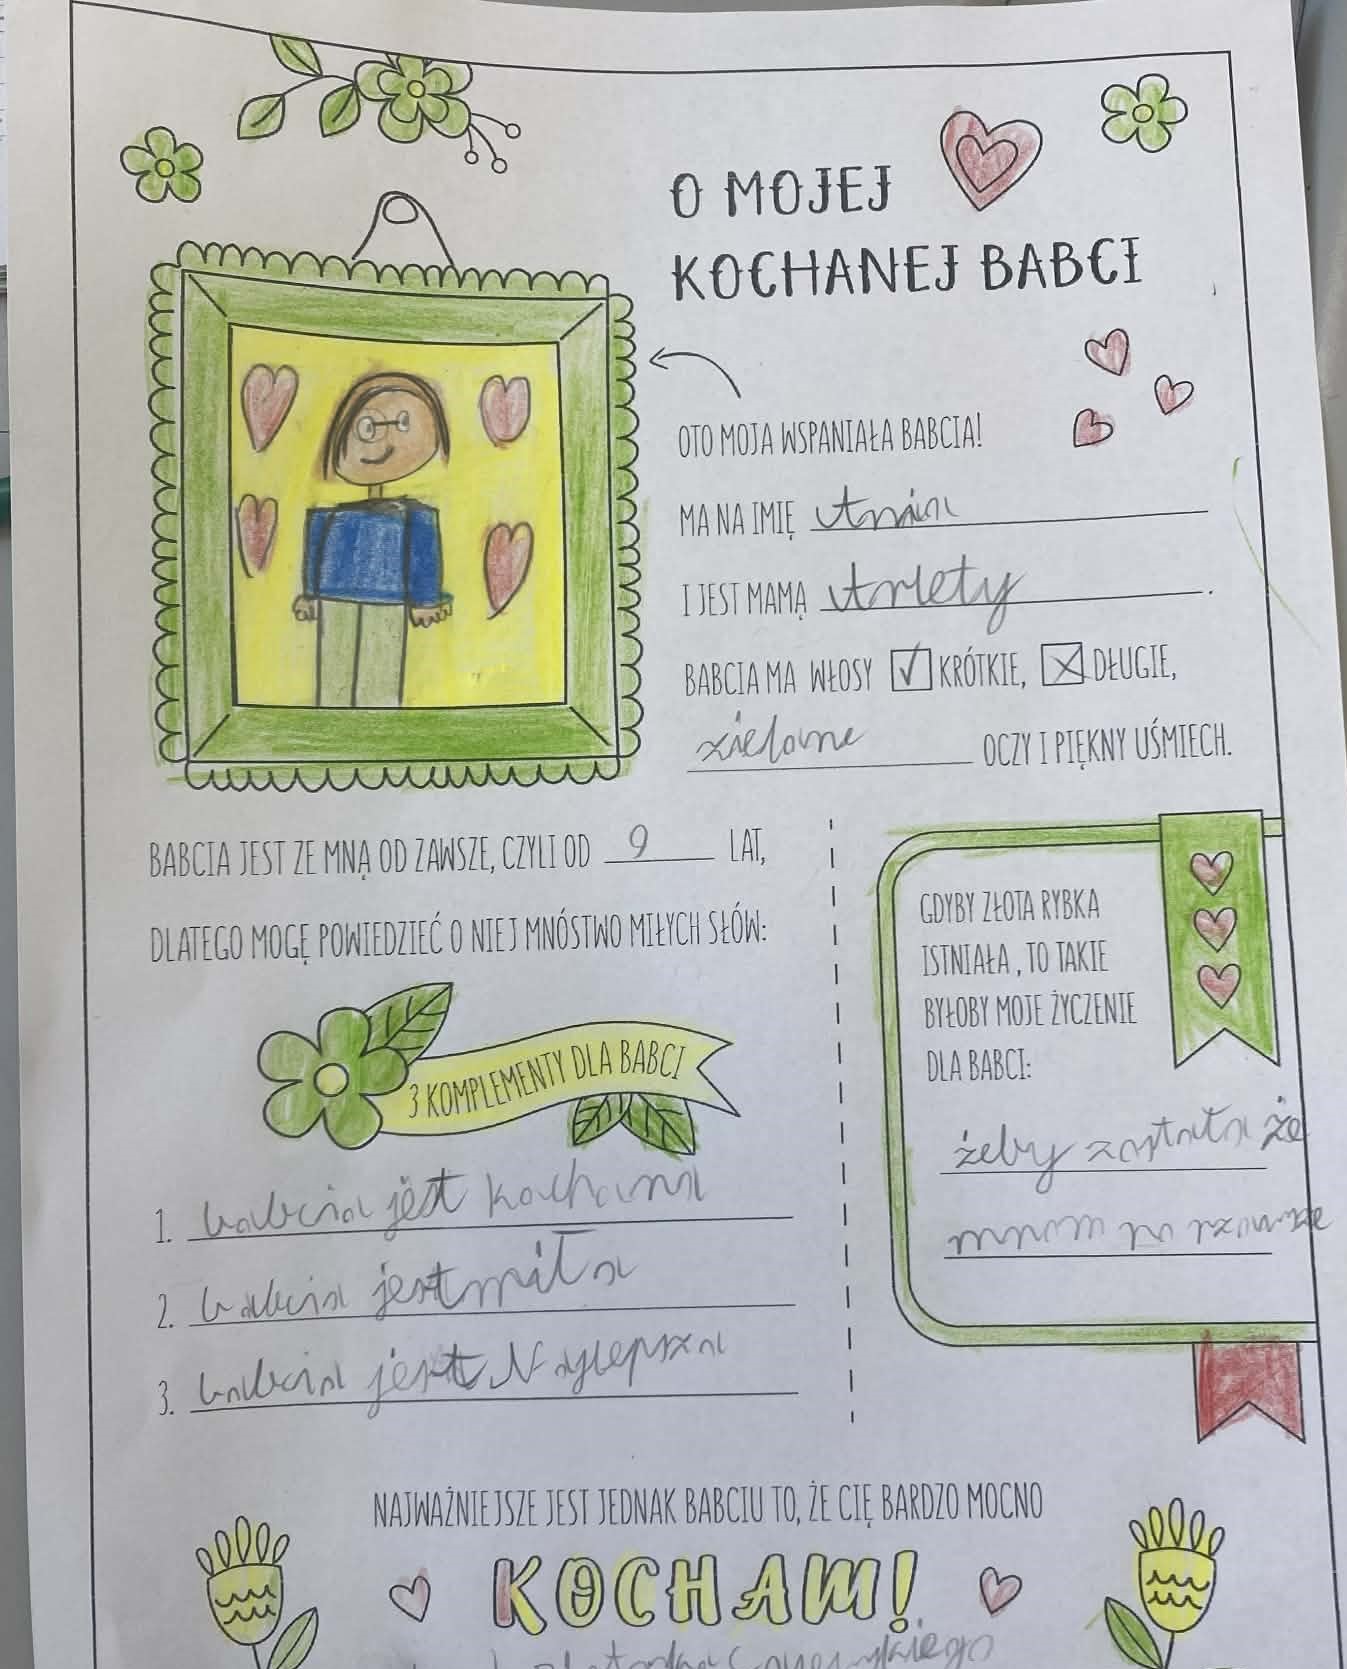 O MOJEJ
KOCHANEJ BABCI
OTO MOJA WSPANIAŁA BABCIA!
MA NA IMIĘ Ania
I JEST MAMĄ Arlety.
BABCIA MA WŁOSY ✓ KRÓTKIE, X DŁUGIE,
zielone OCZY I PIĘKNY UŚMIECH.
BABCIA JEST ZE MNĄ OD ZAWSZE, CZYLI OD 9 LAT,
DLATEGO MOGĘ POWIEDZIEĆ O NIEJ MNÓSTWO MIŁYCH SŁÓW:
3 KOMPLEMENTY DLA BABCI
1. babcia jest kochana
2. babcia jest miła
3. babcia jest Najlepsza
GDYBY ZŁOTA RYBKA
ISTNIAŁA, TO TAKIE
BYŁOBY MOJE ŻYCZENIE
DLA BABCI:
żeby została że
mnom na rzawsze
NAJWAŻNIEJSZE JEST JEDNAK BABCIU TO, ŻE CIĘ BARDZO MOCNO
KOCHAM!